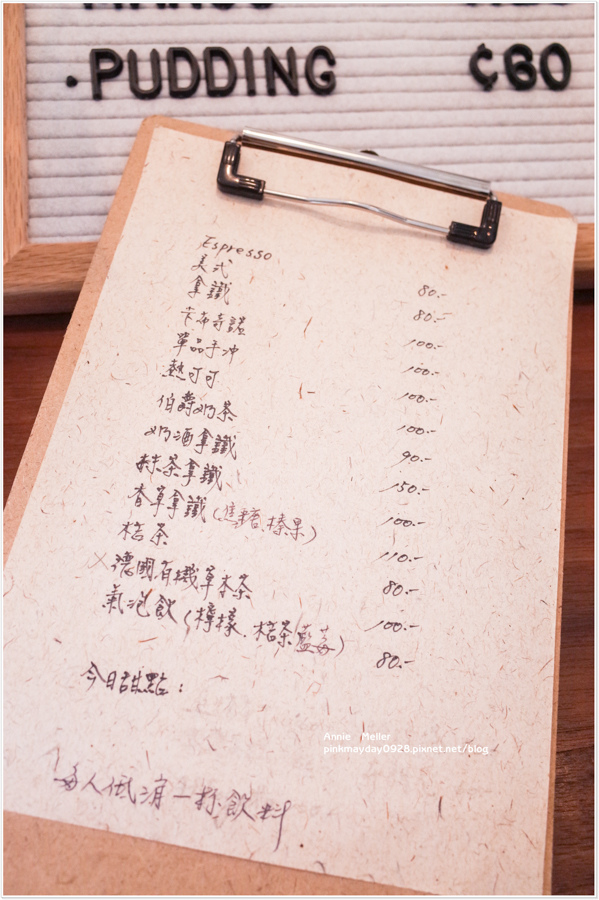 ·PUDDING ¢60
Espresso 80.-
美式 80.-
拿鐵 100.-
卡布奇諾 100.-
單品手冲 100.-
熱可可 100.-
伯爵奶茶 90.-
奶酒拿鐵 150.-
抹茶拿鐵 100.-
香草拿鐵(焦糖、榛果) 110.-
桔茶 80.-
德國有機草本茶 100.-
氣泡飲(檸檬、桔茶 藍莓) 80.-
今日甜點：
每人低消一杯飲料
Annie Meller
pinkmayday0928.pixnet.net/blog